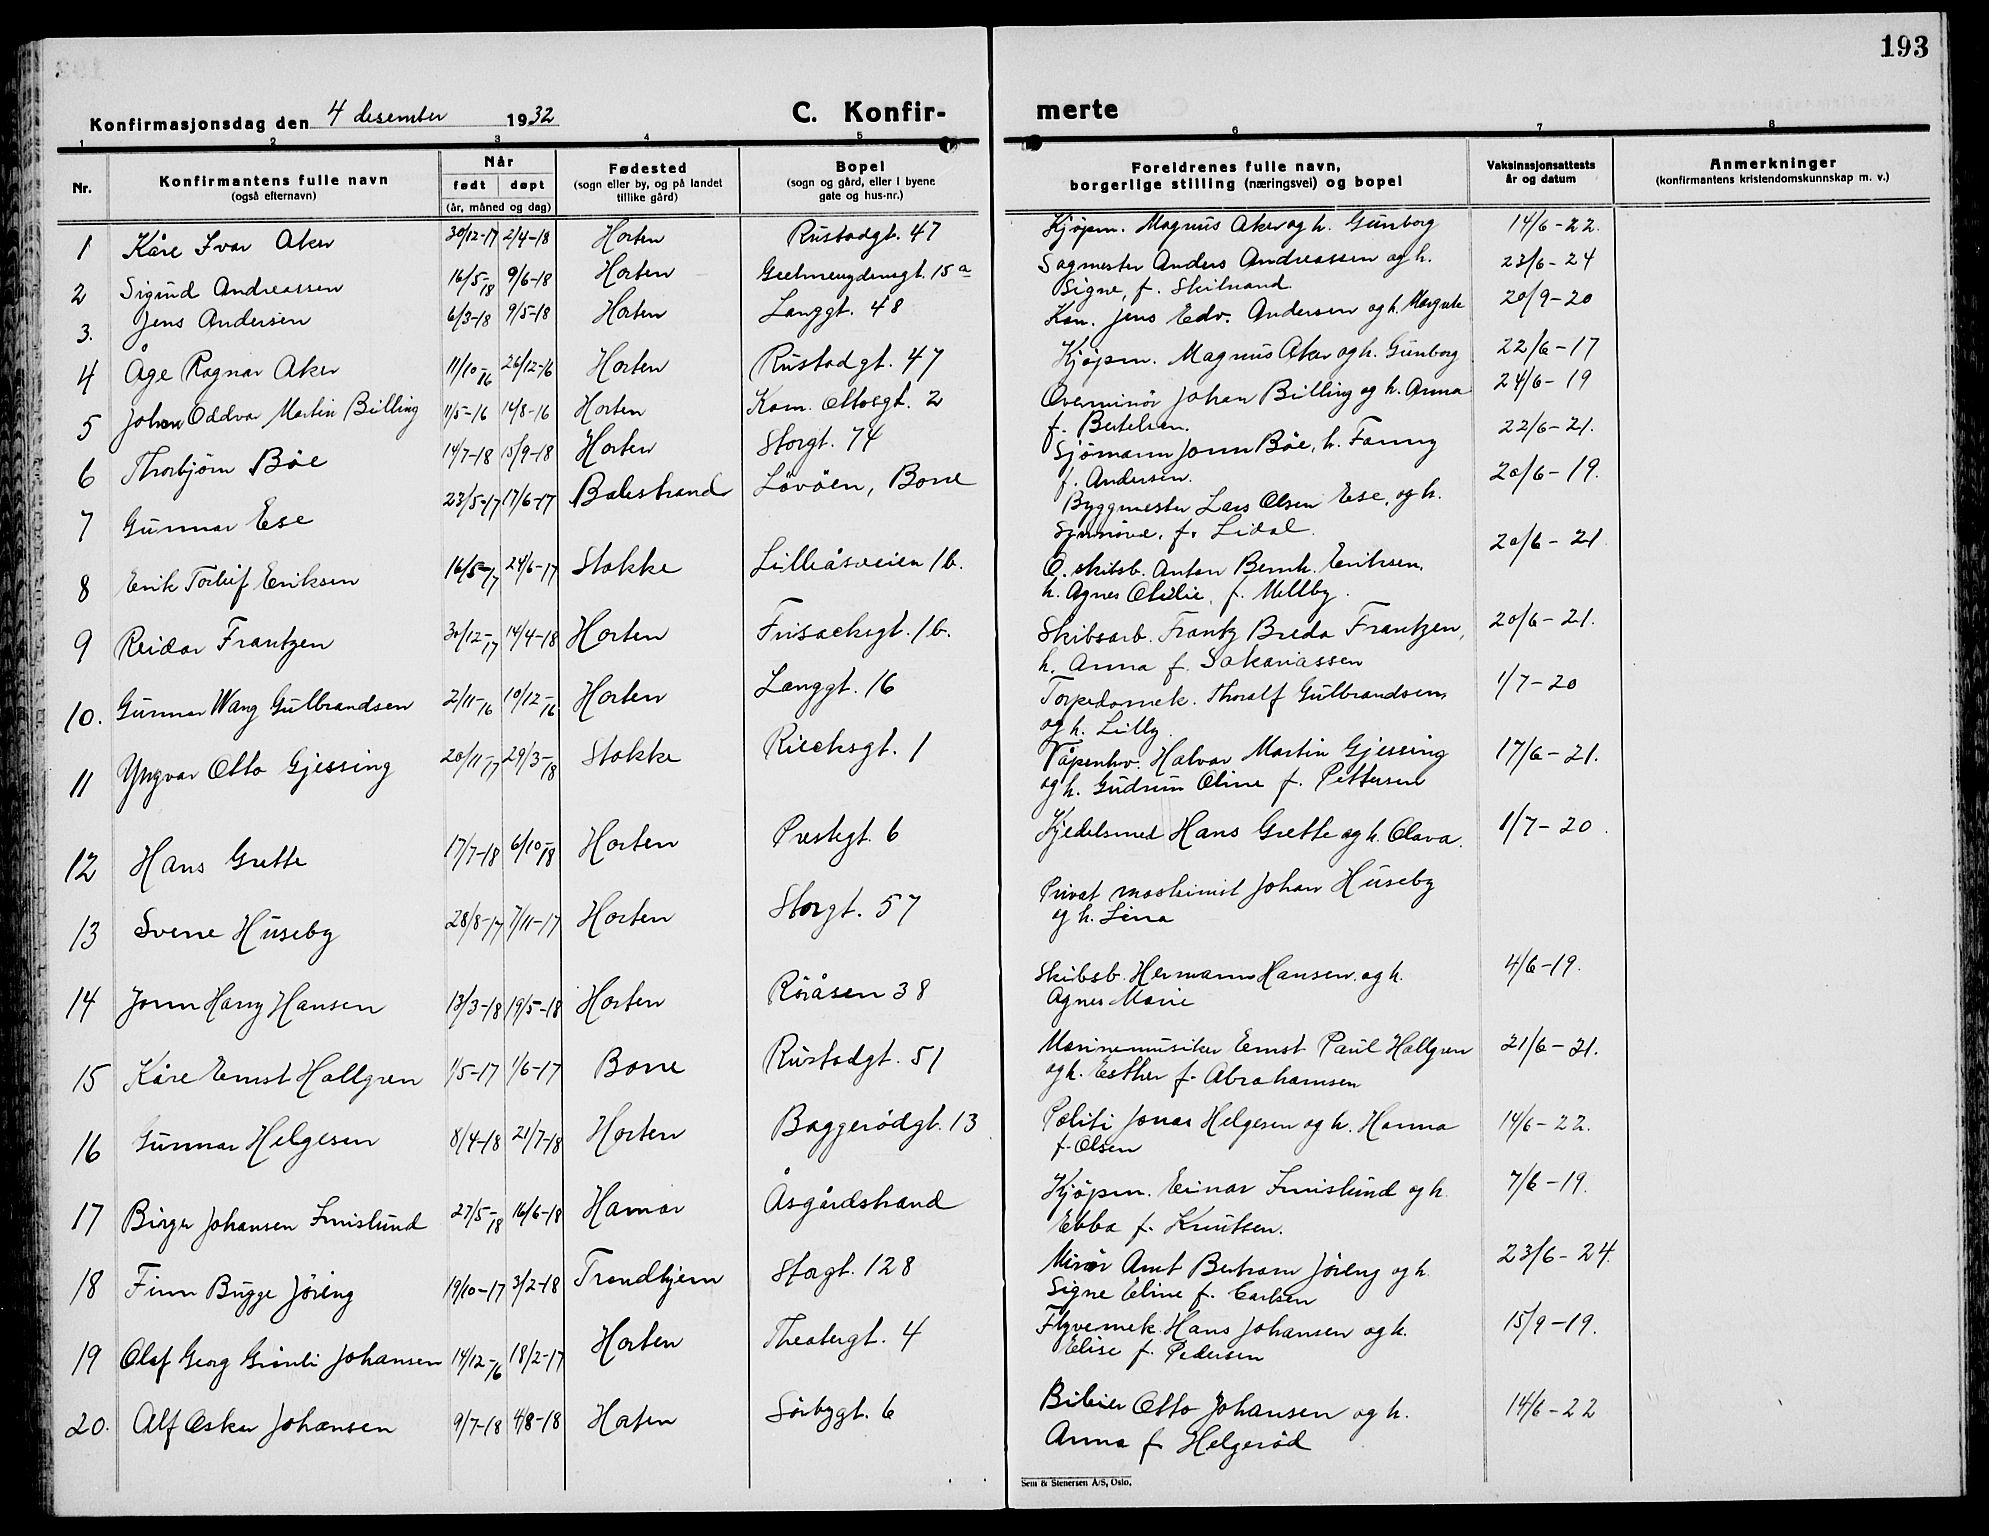 193
Konfirmasjonsdag den 4 desember 1932
C. Konfir-
merte
1 2 3 4 5 6 7 8
Nr. Konfirmantens fulle navn (også efternavn) Når født døpt (år, måned og dag) Fødested (sogn eller by, og på landet tillike gård) Bopel (sogn og gård, eller i byene gate og hus-nr.) Foreldrenes fulle navn, borgerlige stilling (næringsvei) og bopel Vaksinasjonsattests år og datum Anmerkninger (konfirmantens kristendomskunnskap m. v.)
1 Kåre Ivar Aker 30/12-17 2/4-18 Horten Rustadgt. 47 Kjøpm. Magnus Aker og h. Gunborg 14/6-22.
2 Sigurd Andreassen 16/5-18 9/6-18 Horten 15a Sagmester Anders Andreassen og h. 23/6-24
Signe, f.
3. Jens Andersen 6/3-18 9/5-18 Horten Langgt. 48 Kan. Jens Edv. Andersen og h. Margrete 20/9-20
4 Åge Ragnar Aker 11/10-16 26/12-16 Horten Rustadgt. 47 Kjøpm. Magnus Aker og h. Gunborg 22/6-17
5 Johan Oddvar Martin Billing 1/5-16 14/8-16 Horten Kom. Ottosgt. 2 Overminør Johan Billing og h. Anna 24/6-19
f. Bertelsen.
6 Thorbjörn Böe 14/7-18 15/9-18 Horten Storgt. 74 Sjömann John Böe, h. Fanny 22/6-21.
f. Andersen.
7 Gunnar Ese 23/5-17 17/6-17 Balestrand Lövöen, Borre Byggmester Lars Olsen Ese, og h. 20/6-19.
Synnöve, f. Lidal.
8 Erik Torleif Eriksen 16/5-17 24/6-17 Stokke Lilleåsveien 1b. O. skibsb. Anton Bernh. Eriksen, 20/6-21
h. Agnes Otilie, f. Mellby.
9 Reidar Frantzen 30/12-17 14/4-18 Horten Frisacksgt. 1b. Skibsarb. Frantz Breda Frantzen, 20/6-21.
h. Anna f. Sakariassen
10. Gunnar Wang Gulbrandsen 2/11-16 10/12-16 Horten Langgt. 16 Torpedomek. Thoralf Gulbrandsen, 1/7-20
og h. Lilly.
11 Yngvar Otto Gjessing 20/11-17 29/3-18 Stokke Riecksgt. 1 Våpenhv. Halvar Martin Gjessing 17/6-21.
og h. Gudrun Oline f. Pettersen
12 Hans Grette 17/7-18 6/10-18 Horten Prestegt. 6 Kjedelsmed Hans Grette og h. Olava. 1/7-20.
13 Svene Huseby 28/8-17 7/11-17 Horten Storgt. 57 Privat maskinist Johan Huseby
og h. Lina
14 John Harry Hansen 13/3-18 19/5-18 Horten Röråsen 38 Skibsb. Hermann Hansen og h. 4/6-19.
Agnes Marie
15 Kåre Ernst Hallgren 1/5-17 1/6-17 Borre Rustadgt. 51 Marinemusiker Ernst Paul Hallgren 21/6-21.
og h. Esther f. Abrahamsen
16 Gunnar Helgesen 8/4-18 21/7-18 Horten Baggerödgt. 13 Politi Jonas Helgesen og h. Hanna 14/6-22.
f. Olsen
17 Birger Johansen Imislund 27/5-18 16/6-18 Hamar Åsgårdstrand Kjöpm. Einar Imislund og h. 7/6-19.
Ebba f. Knutsen.
18 Finn Bugge Jöreng 19/10-17 3/2-18 Trondhjem Storgt. 128 Minör Arnt Bertram Jöreng og h. 23/6-24.
Signe Eline f. Carlsen
19 Olaf Georg Grönli Johansen 14/12-16 18/2-17 Horten Theatergt. 4 Flyvemek. Hans Johansen og h. 15/9-19.
Elise f. Pedersen
20. Alf Oskar Johansen 9/7-18 4/8-18 Horten Sörbygt. 6 Bileier Otto Johansen og h. 14/6-22
Anna f. Helgeröd
Sem & Stenersen A/S, Oslo.